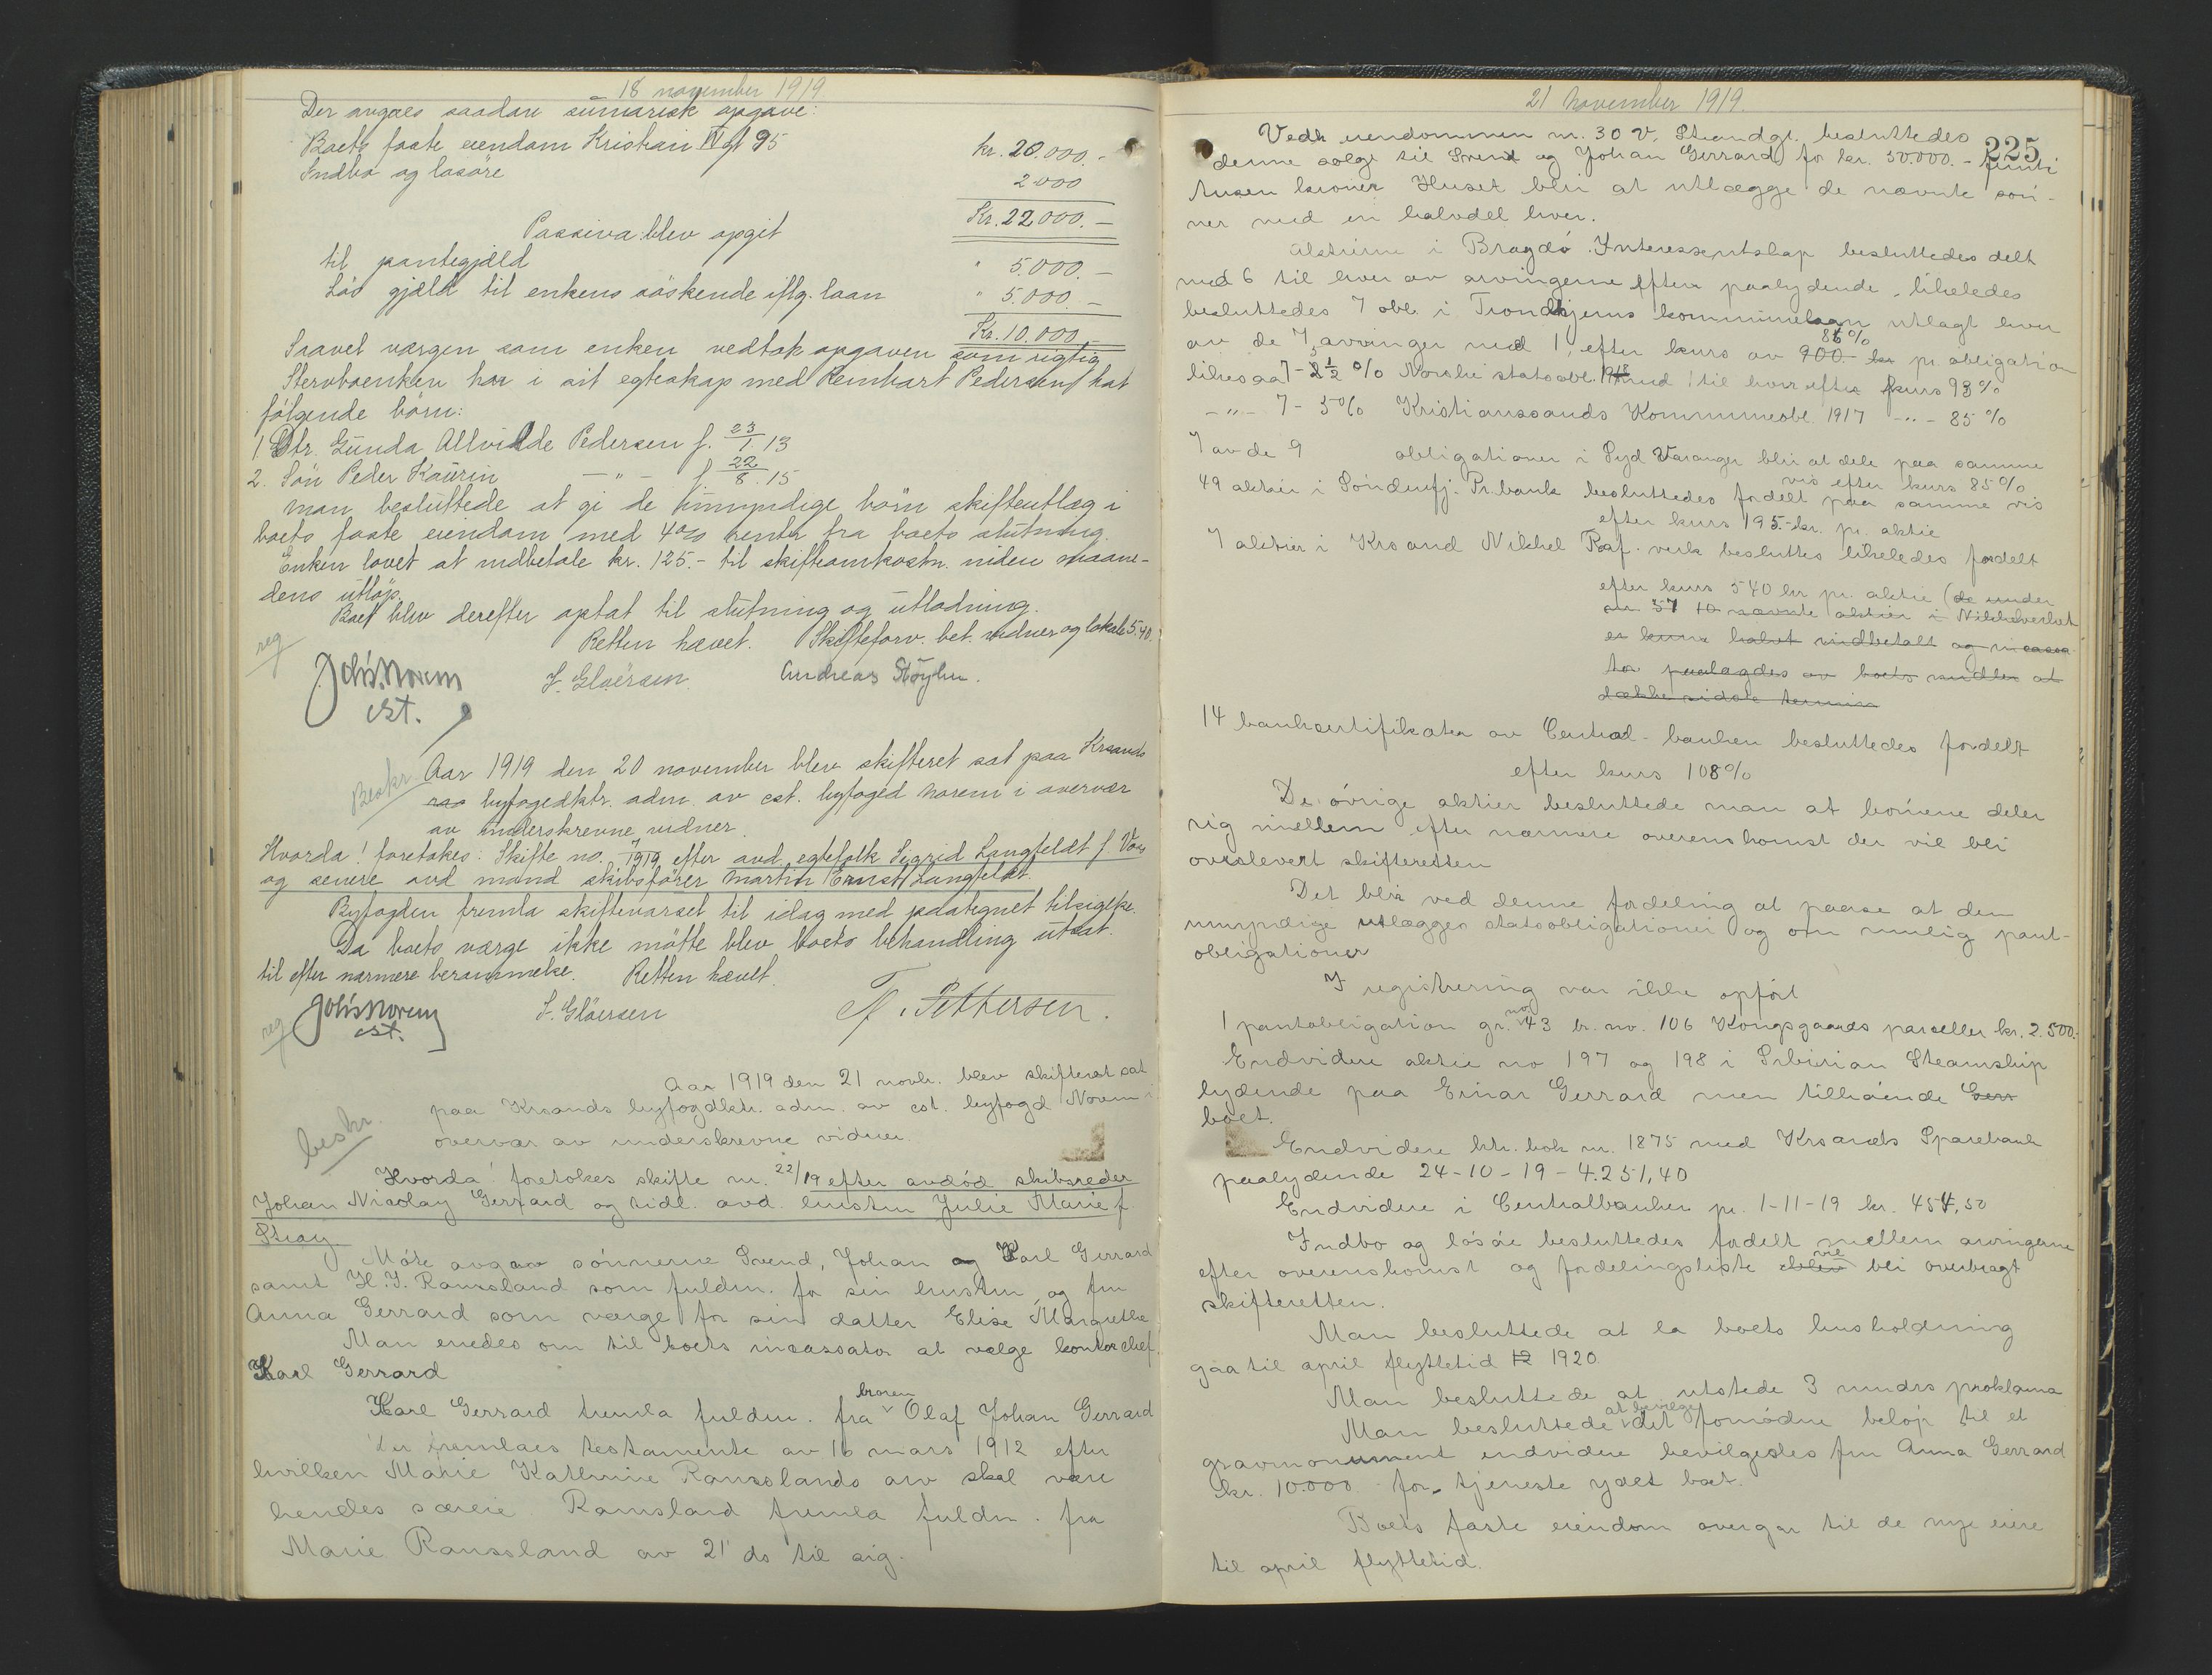 18 november 1919
Der avgaes saadan summarisk opgave:
Boets faste eiendom Kristian IV gt 95 kr. 20.000.-
Indbo og lösöre 2000
Kr. 22.000.-
Passiva blev opgit
til pantegjæld " 5.000.-
Lös gjæld til enkens söskende iflg. laan " 5.000.-
Kr. 10.000.-
Saavel værgen som enken vedtok opgaven som rigtig
Stervboenken har i sit egteskap med Reinhart Pedersen hat
følgende börn:
1. Dtr. Gunda Allvilde Pedersen f. 23/1 13
2. Sön Peder Kaurin - " - f. 22/8. 15
Man besluttede at gi de umyndige börn skifteutlæg i
boets faste eiendom med 4% rente fra boets slutning.
Enken lovet at indbetale kr. 125.- til skifteomkostn. inden maane-
dens utlöp.
Boet blev derefter optat til slutning og utlodning.
Retten hævet. Skifteforv. bet. vidner og lokale 5.40.
reg
Johs. Norem
cst.
S. Glöersen
Andreas Stöylen.
Beskr.
Aar 1919 den 20 november blev skifteret sat paa Krsands
byfogedktr. adm. av cst. byfoged Norem i overvær
av underskrevne vidner.
Hvorda! foretokes: Skifte no. 7/1919 efter avd. egtefolk Sigrid Langfeldt f. Vaag
og senere avd mand skibsfører Martin Ernst Langfeldt.
Byfogden fremla skiftevarsel til idag med paategnet tilsigelse.
Da boets værge ikke mötte blev boets behandling utsat
til efter nærmere berammelse. Retten hævet.
reg
Johs Norem
cst.
S. Glöersen
T. Pettersen.
beskr.
Aar 1919 den 21 novbr. blev skifteret sat
paa Krsands byfogdktr. adm. av cst. byfogd Norem i
overvær av underskrevne vidner.
Hvorda! foretokes skifte nr. 22/19 efter avdöd skibsreder
Johan Nicolay Gerrard og tidl. avd. hustru Julie Marie f.
Stray
Möte avgav sönnerne Svend, Johan og Karl Gerrard
samt H.J. Ramsland som fuldm. for sin hustru og fru
Anna Gerrard som værge for sin datter Elise Margrethe
Man enedes om til boets incassator at vælge kontorchef
Karl Gerrard
Karl Gerrard fremla fuldm. fra broren Olaf Johan Gerrard
Der fremlaes testamente av 16 mars 1912 efter
hvilken Marie Kathrine Ramslands arv skal være
hendes særeie. Ramsland fremla fuldm. fra
Marie Ramsland av 21 ds til sig.
21 november 1919.
225
Vedr eiendommen nr. 30 V. Strandgt. besluttedes
denne solgt til Svend og Johan Gerrard for kr. 50.000.- femti
tusen kroner Huset blir at utlægge de nævnte sön-
ner med en halvdel hver.
Aktierne i Bragdö Interessentskap besluttedes delt
med 6 til hver av arvingerne efter paalydende, likeledes
besluttedes 7 obl. i Trondhjems kommunelaan utlagt hver
av de 7 arvinger med 1, efter kurs av 900.- kr 86% pr. obligation
likesaa 7 - 3 1/2 % Norske statsobl. med 1 til hver efter kurs 93%
- " - 7 - 5% Kristianssands Kommuneobl. 1917 - " - 85%
7 av de 9 obligationer i Syd Varanger blir at dele paa samme
vis efter kurs 85%
49 aktier i Sönderfj. Pr.bank besluttedes fordelt paa samme vis
efter kurs 195.- kr. pr. aktie
7 aktier i Krsand Nikkel Raf. verk besluttes likeledes fordelt
efter kurs 540 kr pr. aktie (de under
nr. 57 nævnte aktier i Nikkelverket
er kun halvt indbetalt og incassa
tor paalagdes av boets midler at
dække sidste termin
14 bankcertifikater av Central-banken besluttedes fordelt
efter kurs 108%
De övrige aktier besluttede man at börnene deler
sig imellem efter nærmere overenskomst der vil bli
overlevert skifteretten
Det blir ved denne fordeling at paase at den
umyndige utlægges statsobligationer og om mulig pant-
obligationer
I registrering var ikke opfört
1 pantobligation gr. no 43 br. no. 106 Kongsgaards parceller kr. 2.500.-
Endvidere aktie no 197 og 198 i Sibirian Steamship
lydende paa Einar Gerrard men tilhörende Gerr
boet.
Endvidere ktr. bok nr. 1875 med Krsands Sparebank
paalydende 24-10-19 - 4.251,40
Endvidere i Centralbanken pr. 1-11-19 kr. 454,50
Indbo og lösöre besluttedes fordelt mellem arvingerne
efter overenskomst og fordelingsliste vil bli overbragt
skifteretten.
Man besluttede at la boets husholdning
gaa til april flyttetid 19 1920.
Man besluttede at utstede 3 mndrs proklama
Man besluttede at bevilge det fornödne belöp til et
gravmonument endvidere bevilgedes fru Anna Gerrard
kr. 10.000 for tjeneste ydet boet.
Boets faste eiendom overgar til de nye eiere
til april flyttetid.